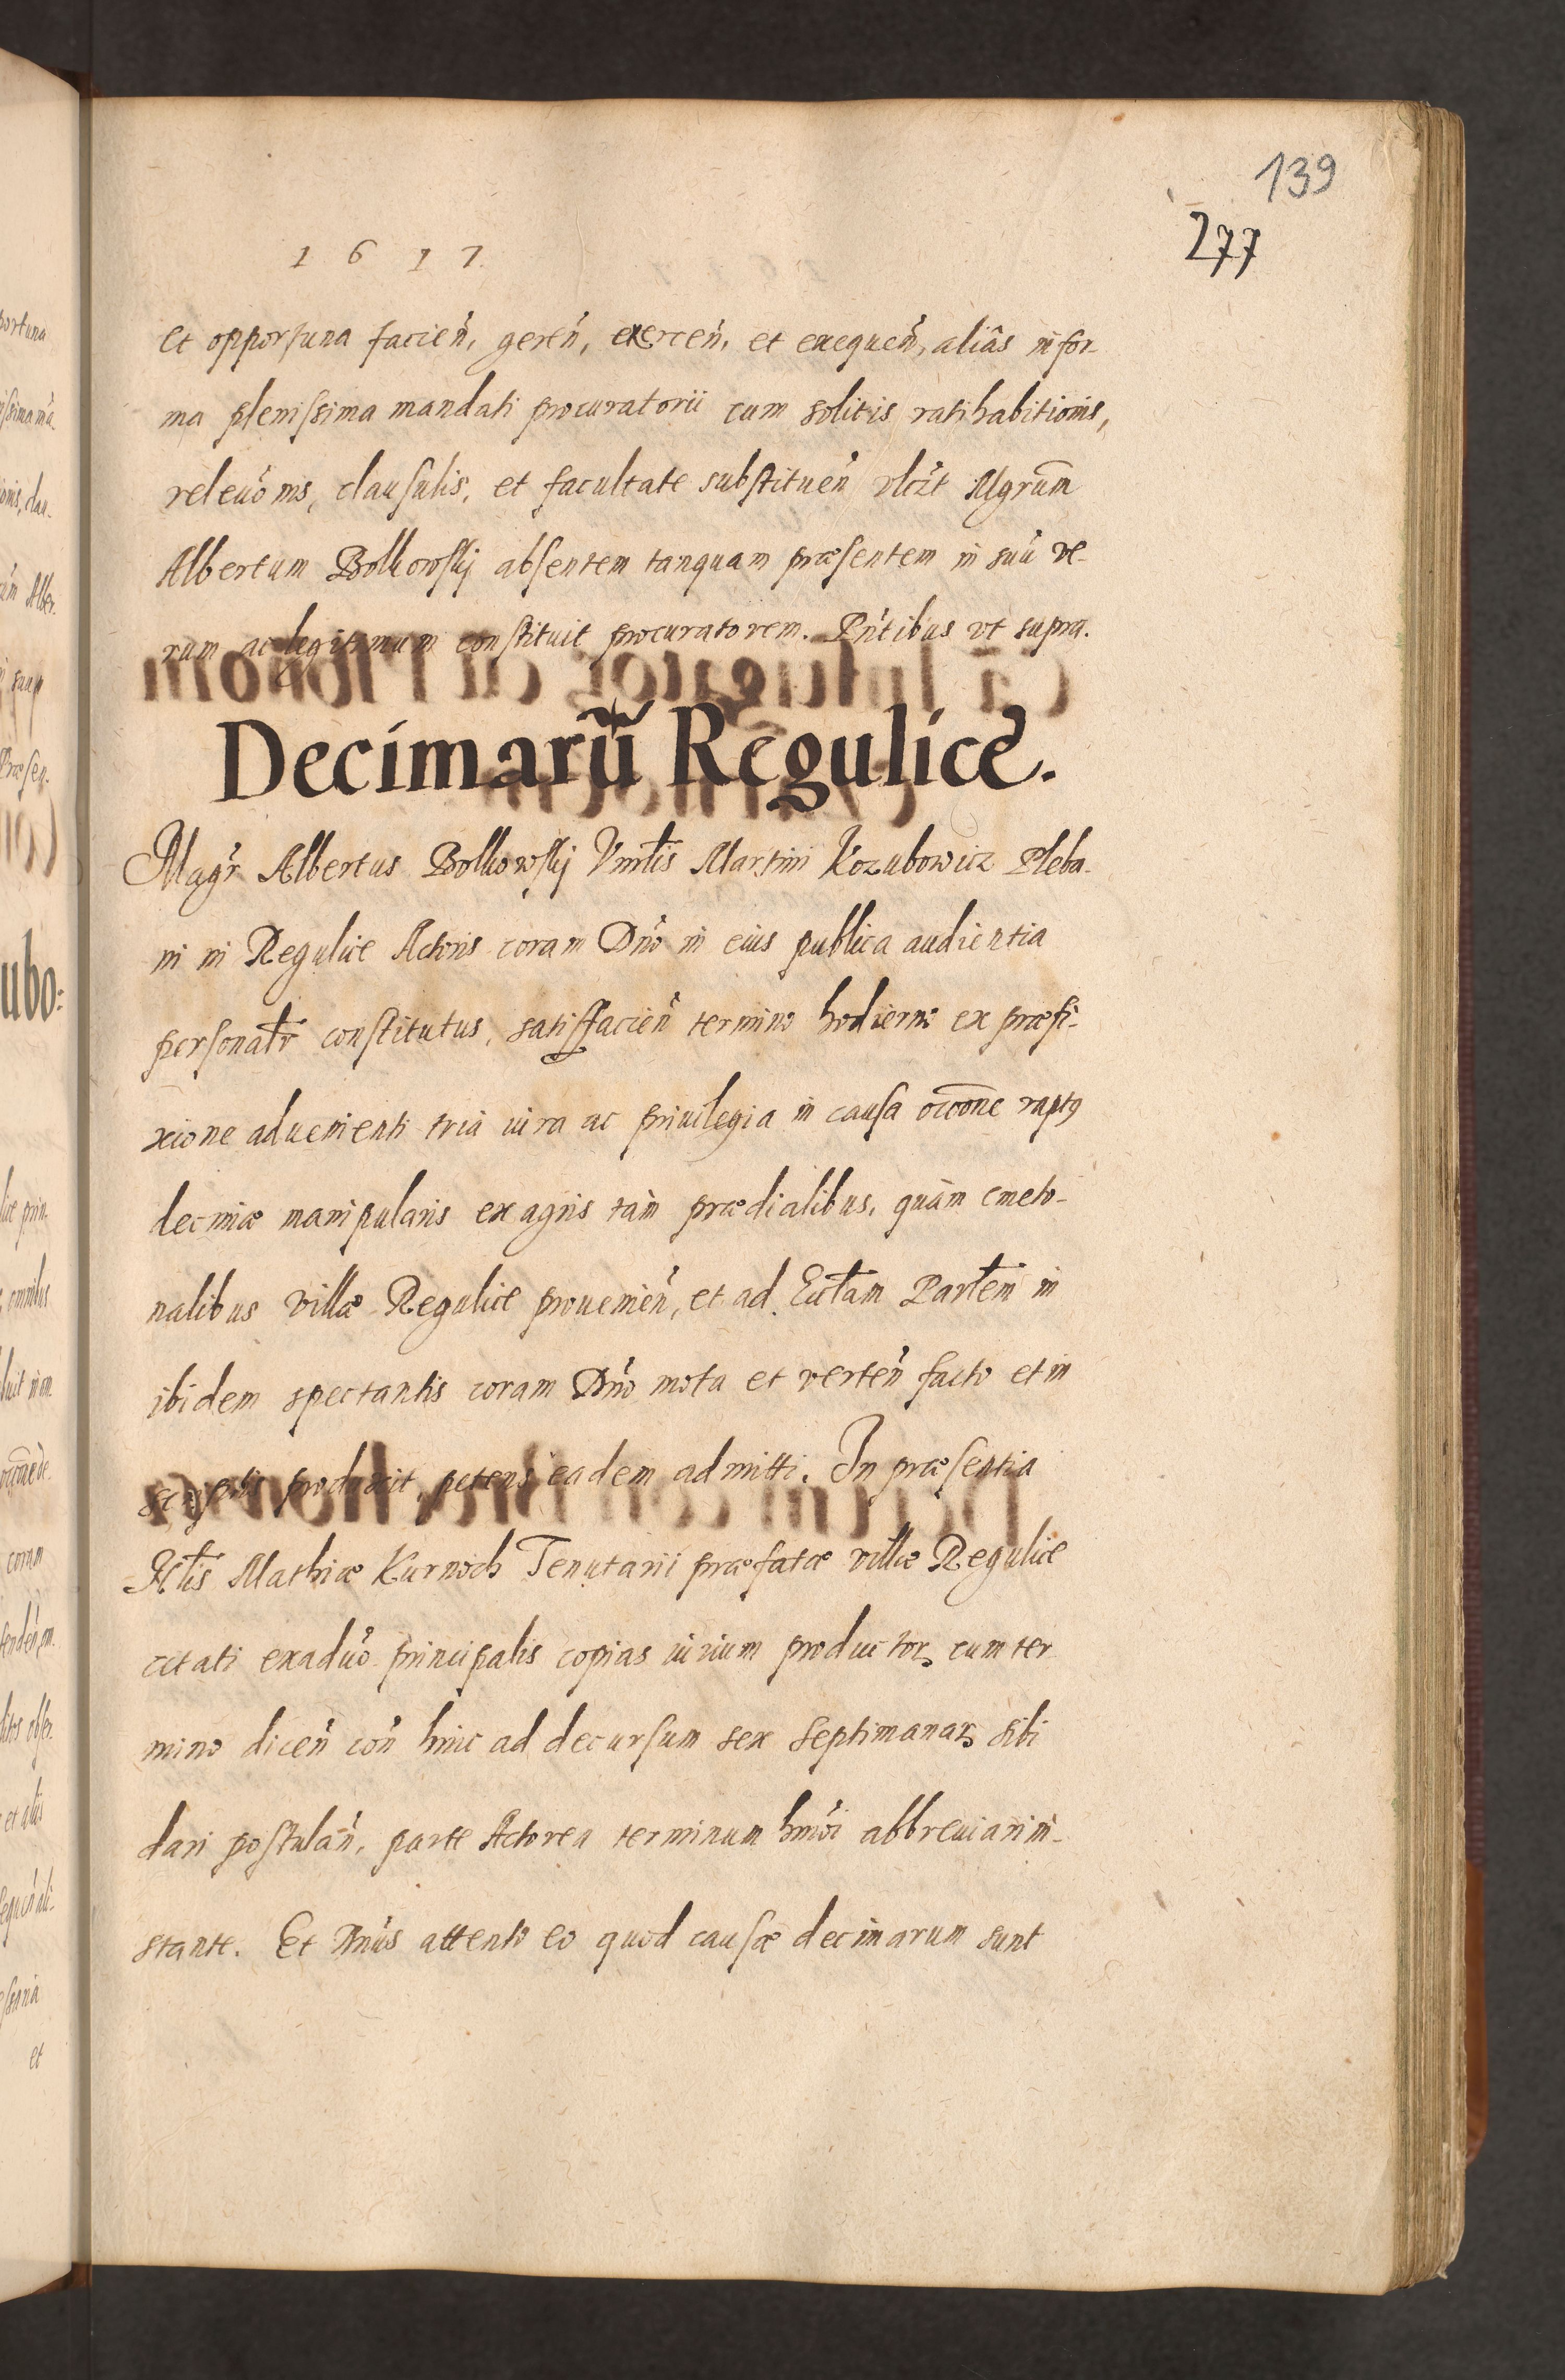 139
277
1617.
et opportuna facien̄, geren̄, exercen̄, et exequen̄, aliâs in for-
ma plenissima mandati procuratorii cum solitis ratihabitionis,
releuõnis, clausulis, et facultate substituen̄ vlczt Mgrum̄
Albertum Bolkowskj absentem tanquam præsentem in suū ve-
rum ac legitimum constituit procuratorem. Pn̄tibus vt supra.
Decimarū Regulice.
Magr̄ Albertus Bolkowskj Vnrl̄is Martini Kozubowicz Pleba-
ni in Regulice Actoris coram Dn̄o in eius publica audientia
personalr̄ constitutus, satisfacien̄ termino hodierno ex præfi-
xione aduenienti tria iura ac priuilegia in causa occōne raptus
decimæ manipularis ex agris tàm prædialibus, quàm cmeto-
nalibus villæ Regulice prouenien̄, et ad Ecclam̄ Parlem̄ in
ibidem spectantis coram Dn̄o mota et verten̄ facto et in
scriptis produxit, petens eadem admitti. In præsentia
Mathiæ Kurnoch Tenutarii præfatæ villæ Regulice
citati ex aduo principalis copias iurium productor, cum ter
mino dicen̄ con̄ hinc ad decursum sex septimanar, sibi
dari postulan̄, parte Actorea terminum hmōi abbreuiari in-
stante. Et Dn̄us attento eo quod causæ decimarum sunt